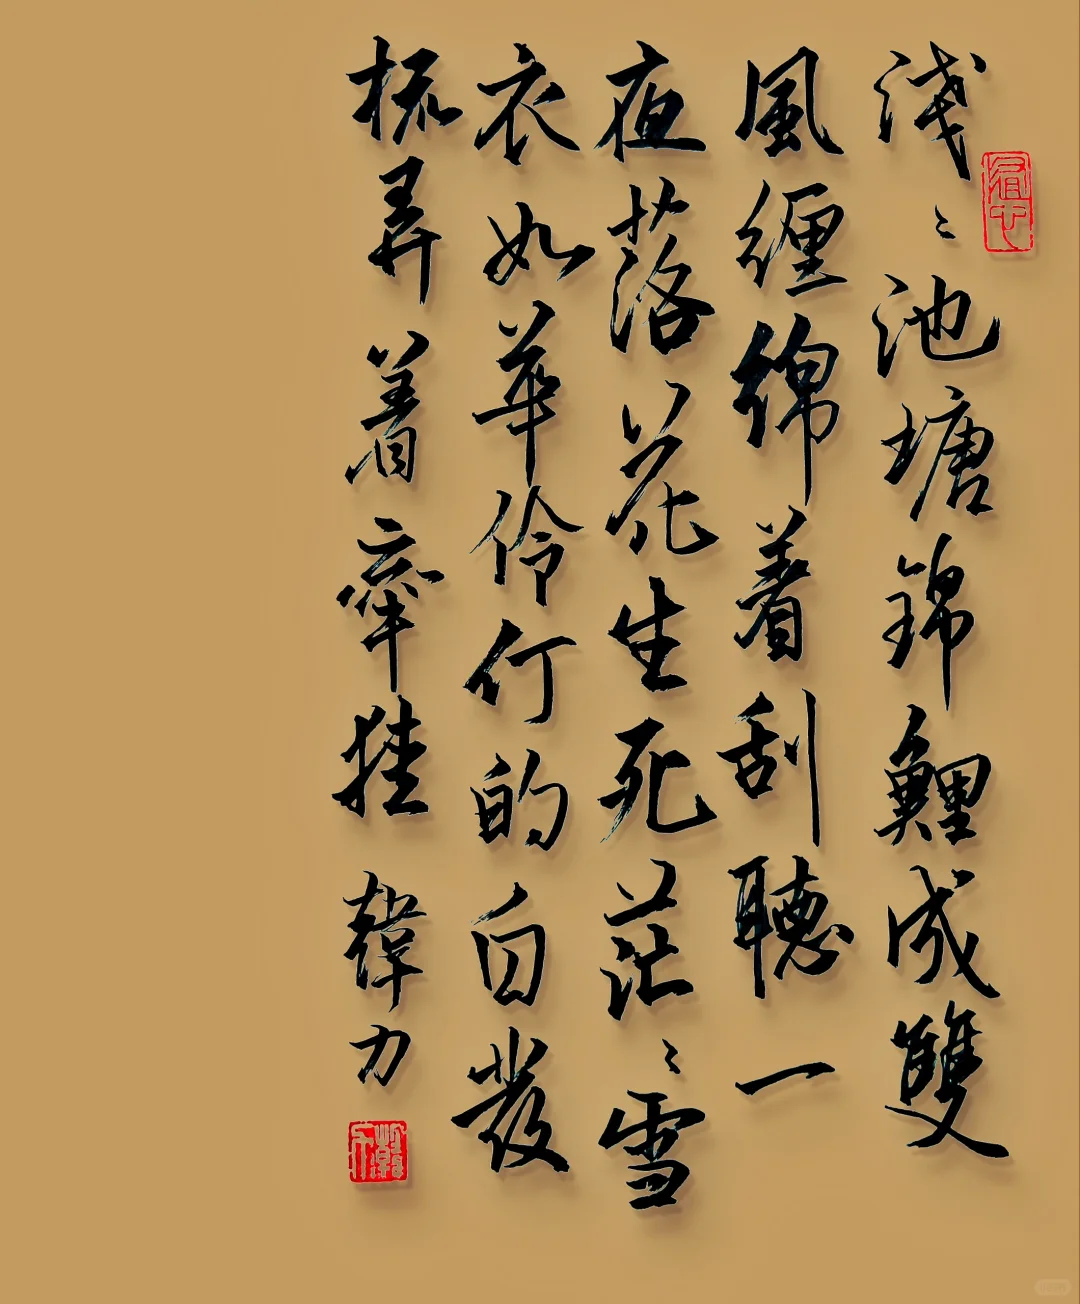 淺〻池塘錦鯉成雙
風纏綿着刮聽一
夜落花生死茫〻雪
衣如華伶仃的白發
梳弄着牽挂 韓力